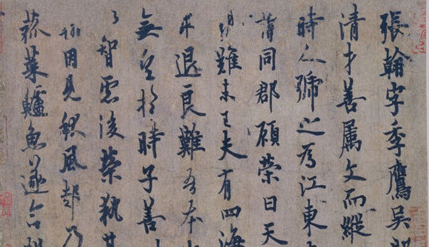 張翰字季鷹吳
清才善属文而縱
時人號之為江東
同郡顧榮曰天
難未已夫有四海
退良難吾本
無望於時子善
智慮後榮執其
因見秋風起乃
菰菜鱸魚遂命